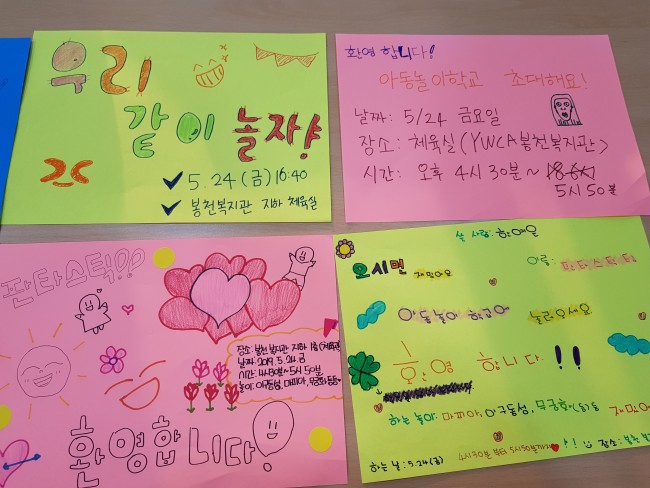 우리
같이 놀자!
✔ 5.24(금) 16:40
✔ 봉천복지관 지하 체육실
환영 합니다!
아동놀이학교 초대해요!
날짜: 5/24 금요일
장소: 체육실(YWCA봉천복지관)
시간: 오후 4시 30분~
5시 50분
판타스틱!!
장소: 봉천복지관 지하 1층(체육관)
날짜: 2019. 5. 24. 금
시간: 4시30분~5시 50분
놀이: 야구동성, 마피아, 무궁화 등등
환영합니다!
쓴 사람:
오시면 재밌어요
이름: 판타스틱
아동놀이 학교에 놀러오세요
환영 합니다!!
하는 놀이: 마피아, 야구동성, 무궁화 등등 재밌
4시30분 부터 5시50분까지
하는 날: 5.24(금)
장소: 봉천